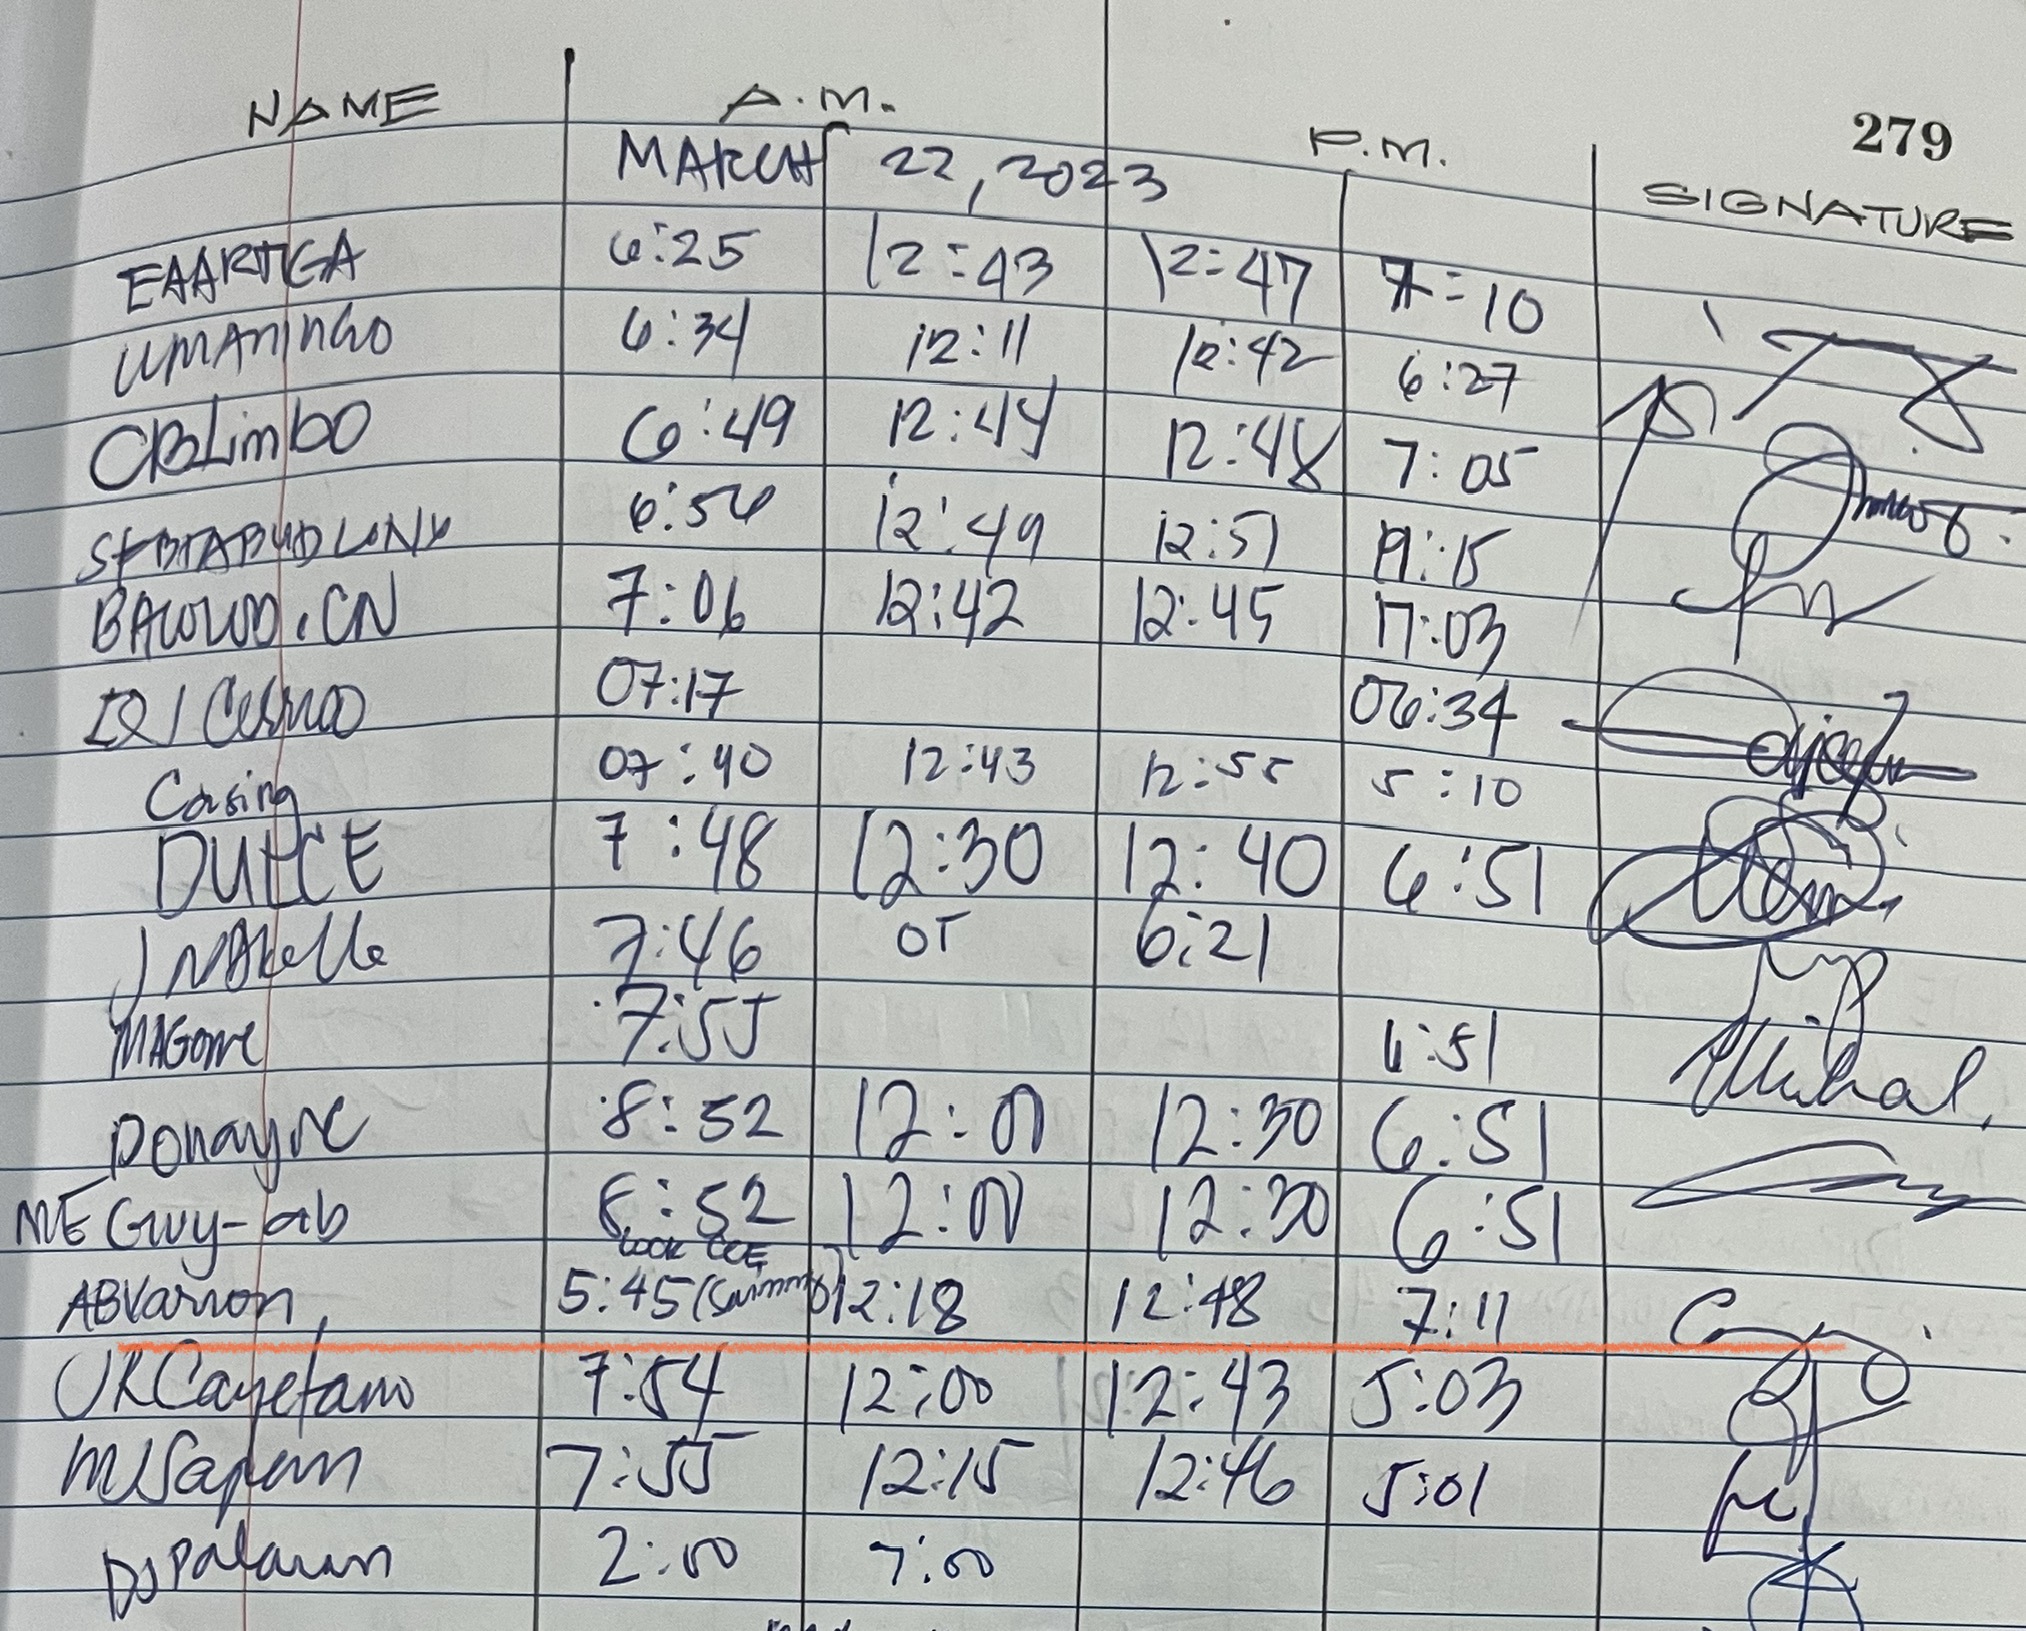 279
NAME A.M. P.M. SIGNATURE
MARCH 22, 2023
EAARTIGA 6:25 12:43 12:47 7:10
UMANINGO 6:34 12:11 12:42 6:27
CBLimbo 6:49 12:44 12:48 7:05
6:56 12:49 12:51 19:15
7:06 12:42 12:45 17:03
07:17 06:34
Casing 07:40 12:43 12:55 5:10
DULCE 7:48 12:30 12:40 6:51
7:46 OT 6:21
7:55 6:51
Donayre 8:52 12:00 12:30 6:51
ME Guy-ab 8:52 12:00 12:30 6:51
LOOK COE
ABVarron 5:45 12:18 12:48 7:11
JRCayetano 7:54 12:00 12:43 5:03
MJSapan 7:55 12:15 12:46 5:01
2:00 7:00